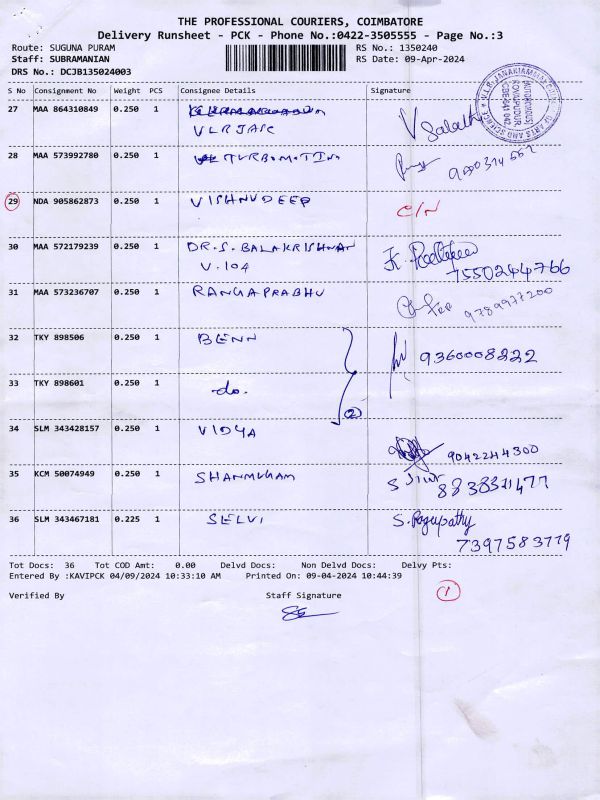 THE PROFESSIONAL COURIERS, COIMBATORE
Delivery Runsheet - PCK - Phone No.:0422-3505555 - Page No.:3
Route: SUGUNA PURAM RS No.: 1350240
Staff: SUBRAMANIAN RS Date: 09-Apr-2024
DRS No.: DCJB135024003
S No Consignment No Weight PCS Consignee Details Signature
27 MAA 864310849 0.250 1
VLRJASC V
28 MAA 573992780 0.250 1 TURBOMOTINO
29 NDA 905862873 0.250 1 VISHNUDEEP C/N
30 MAA 572179239 0.250 1 DR.S.BALAKRISHNAN
V.104 7550244766
31 MAA 573236707 0.250 1 RANGAPRABHU 9789977200
32 TKY 898506 0.250 1 BENN 9360008222
33 TKY 898601 0.250 1 -do. (2)
34 SLM 343428157 0.250 1 VIDYA 9042244300
35 KCM 50074949 0.250 1 SHANMUGAM
36 SLM 343467181 0.225 1 SELVI S.
7397583779
Tot Docs: 36 Tot COD Amt: 0.00 Delvd Docs: Non Delvd Docs: Delvy Pts:
Entered By :KAVIPCK 04/09/2024 10:33:10 AM Printed On: 09-04-2024 10:44:39
1
Verified By Staff Signature